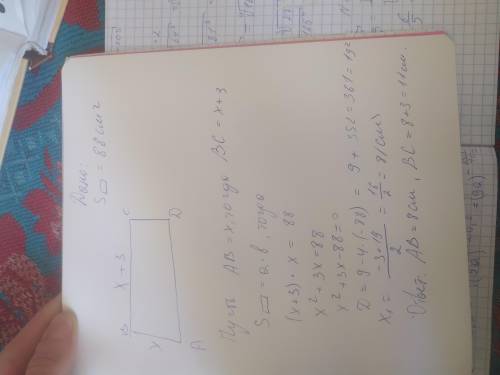 Дано:
S▭ = 88 см²
B x + 3 C
x
A D
Пусть AB = x, тогда BC = x + 3
S▭ = a · b, тогда
(x+3) · x = 88
x² + 3x = 88
x² + 3x - 88 = 0
D = 9 - 4 · (-88) = 9 + 352 = 361 = 19²
x₁ = (-3 + 19)/2 = 16/2 = 8 (см)
Ответ: AB = 8 см, BC = 8 + 3 = 11 см.